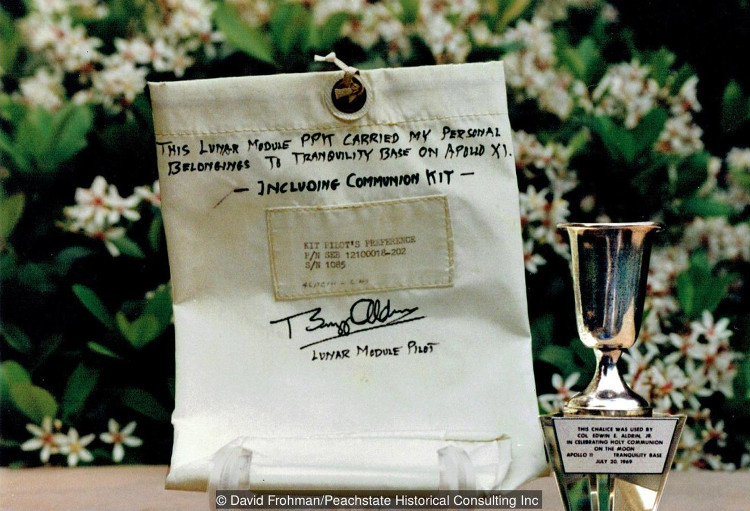 THIS LUNAR MODULE PPK CARRIED MY PERSONAL
BELONGINGS TO TRANQUILITY BASE ON APOLLO XI.
— INCLUDING COMMUNION KIT —
KIT PILOT'S PREFERENCE
P/N SEB 12100018-202
S/N 1085
Buzz Aldrin
LUNAR MODULE PILOT
THIS CHALICE WAS USED BY
COL. EDWIN E. ALDRIN, JR.
IN CELEBRATING HOLY COMMUNION
ON THE MOON
APOLLO 11 TRANQUILITY BASE
JULY 20, 1969
© David Frohman/Peachstate Historical Consulting Inc